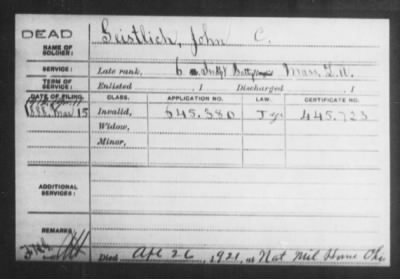 DEAD
NAME OF SOLDIER: Geistlich, John C.
SERVICE: Late rank, 6 Batty Mass. L. A.
TERM OF SERVICE: Enlisted , 1 Discharged , 1
DATE OF FILING. CLASS. APPLICATION NO. LAW. CERTIFICATE NO.
1888. Mar 15 Invalid, 645.380 445.723
Widow,
Minor,
ADDITIONAL SERVICES:
REMARKS:
Died Apl 26, 1921, at Nat Mil Home Ohio